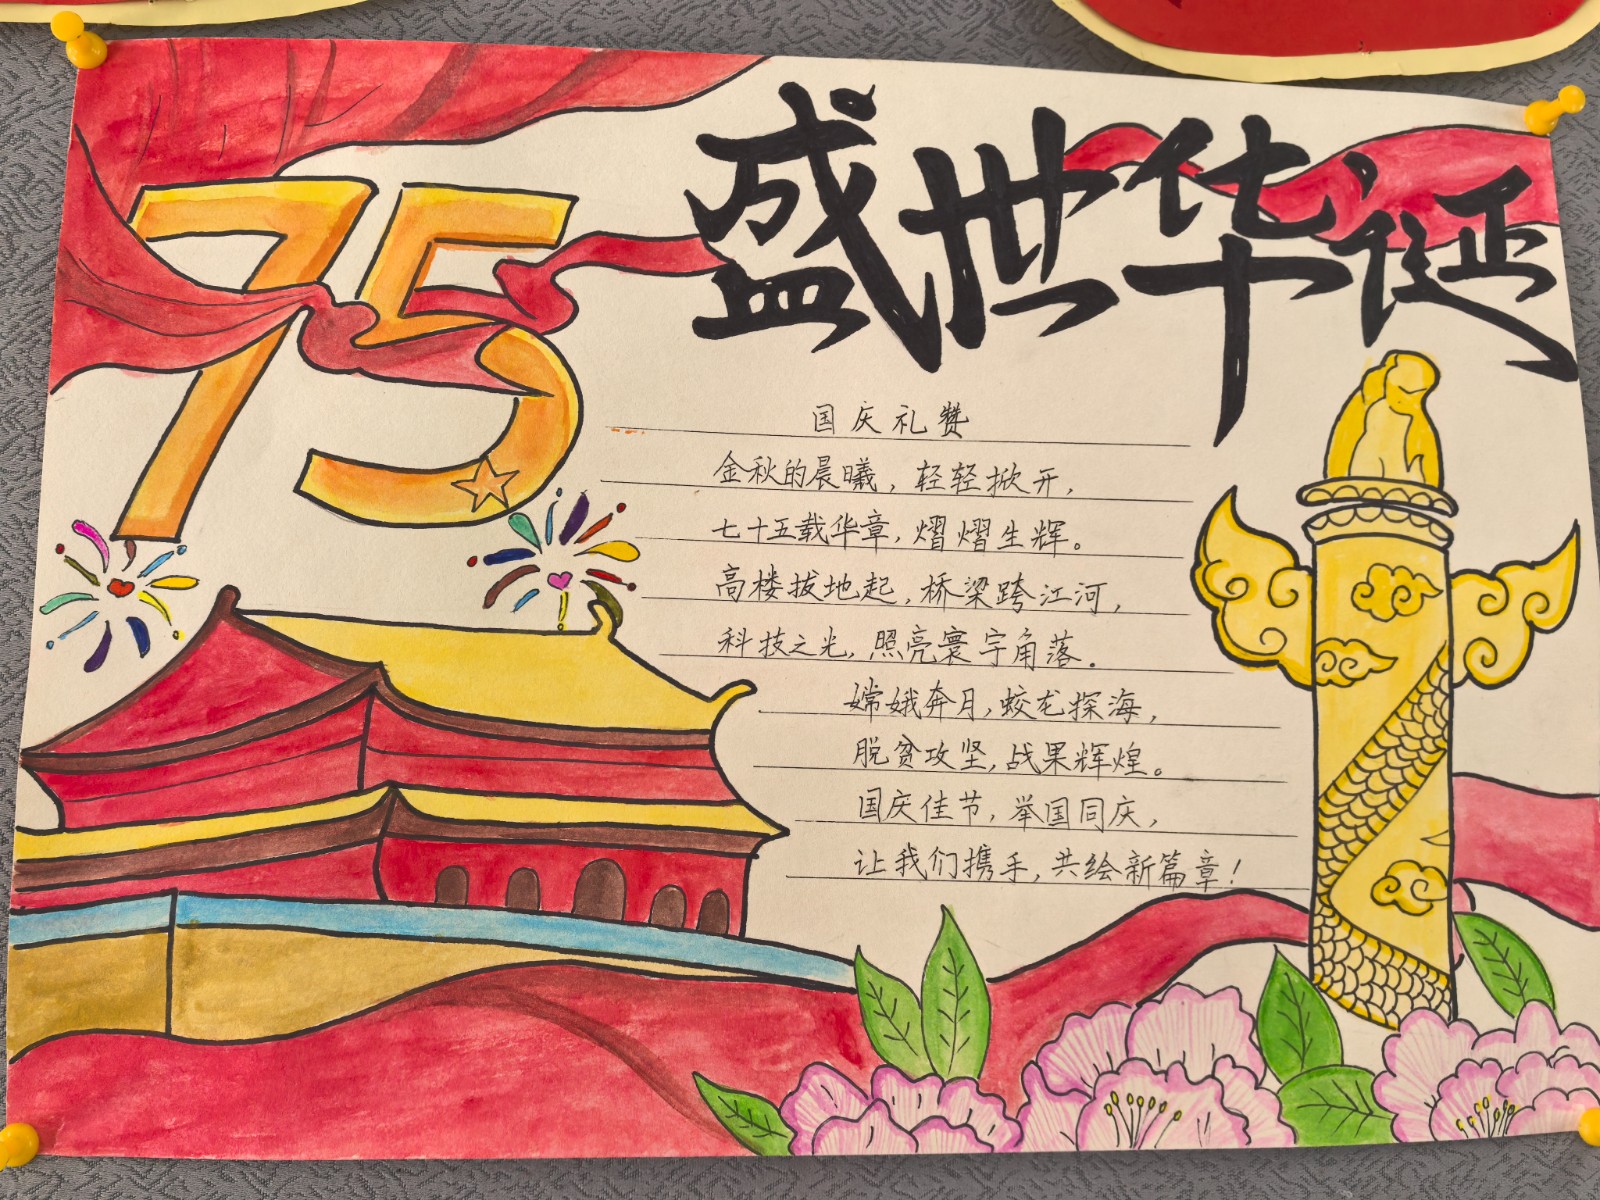 盛世华诞
75
国庆礼赞
金秋的晨曦，轻轻掀开，
七十五载华章，熠熠生辉。
高楼拔地起，桥梁跨江河，
科技之光，照亮寰宇角落。
嫦娥奔月，蛟龙探海，
脱贫攻坚，战果辉煌。
国庆佳节，举国同庆，
让我们携手，共绘新篇章！